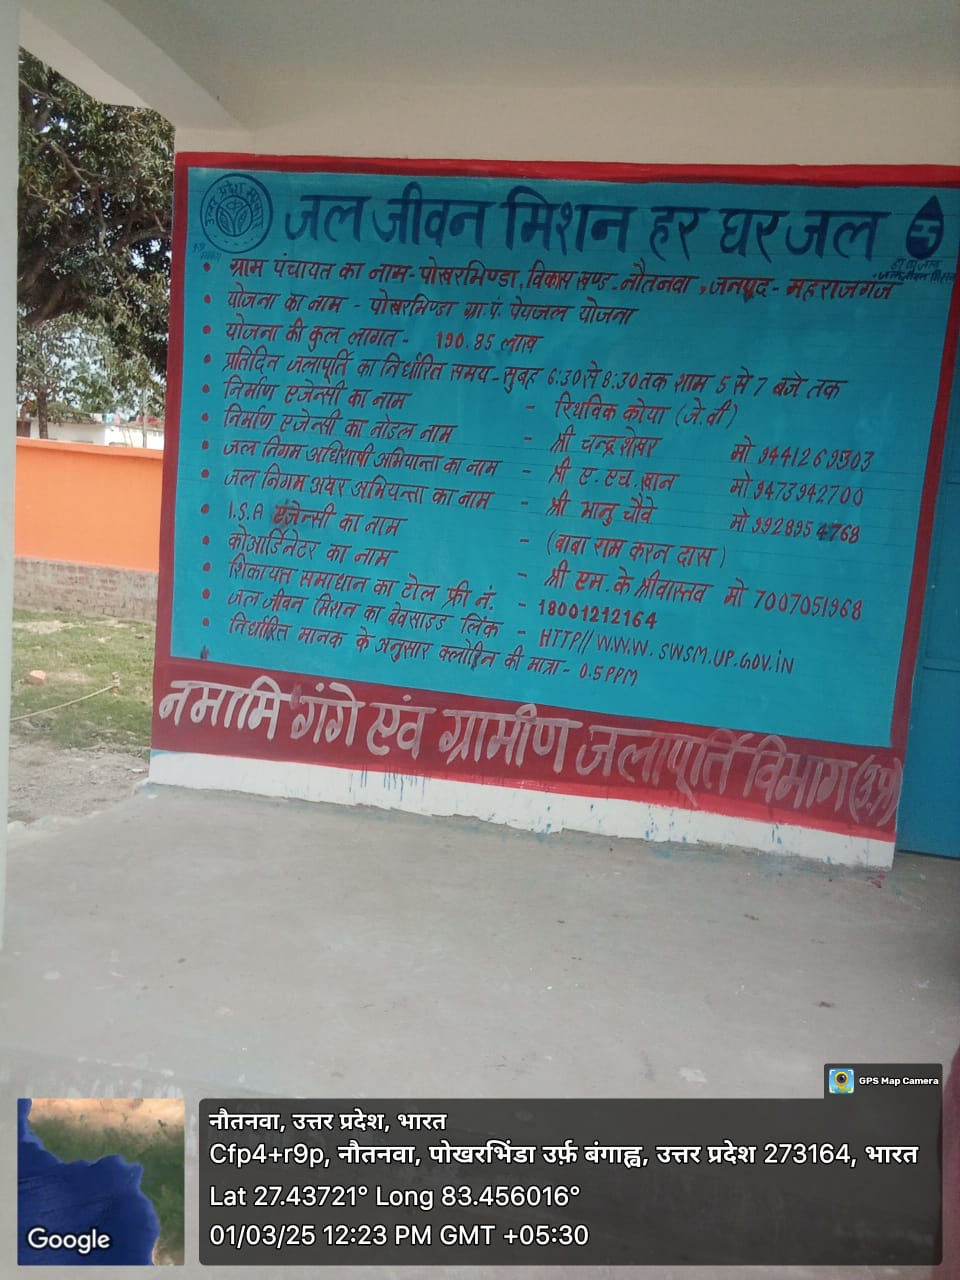 उत्तर प्रदेश सरकार
जल जीवन मिशन हर घर जल
• ग्राम पंचायत का नाम - पोखरभिण्डा, विकास खण्ड - नौतनवा, जनपद - महराजगंज
• योजना का नाम - पोखरभिण्डा ग्रा.पं. पेयजल योजना
• योजना की कुल लागत - 190.85 लाख
• प्रतिदिन जलापूर्ति का निर्धारित समय - सुबह 6:30 से 8:30 तक शाम 5 से 7 बजे तक
• निर्माण एजेन्सी का नाम - रिथविक कोया (जे.वी)
• निर्माण एजेन्सी का नोडल नाम - श्री चन्द्र शेखर मो 9441269303
• जल निगम अधिशाषी अभियान्ता का नाम - श्री ए. एच. खान मो 9473942700
• जल निगम अवर अभियन्ता का नाम - श्री भानु चौवे मो 9928954768
• I.S.A एजेन्सी का नाम - (बाबा राम करन दास)
• कोआर्डिनेटर का नाम - श्री एम. के श्रीवास्तव मो 7007051968
• शिकायत समाधान का टोल फ्री नं. - 18001212164
• जल जीवन मिशन का वेवसाइड लिंक - HTTP// WWW. SWSM.UP.GOV.IN
• निर्धारित मानक के अनुसार क्लोरिन की मात्रा - 0.5PPM
नमामि गंगे एंव ग्रामीण जलापूर्ति विभाग (उ.प्र)
GPS Map Camera
नौतनवा, उत्तर प्रदेश, भारत
Cfp4+r9p, नौतनवा, पोखरभिंडा उर्फ़ बंगाह्व, उत्तर प्रदेश 273164, भारत
Lat 27.43721° Long 83.456016°
01/03/25 12:23 PM GMT +05:30
Google